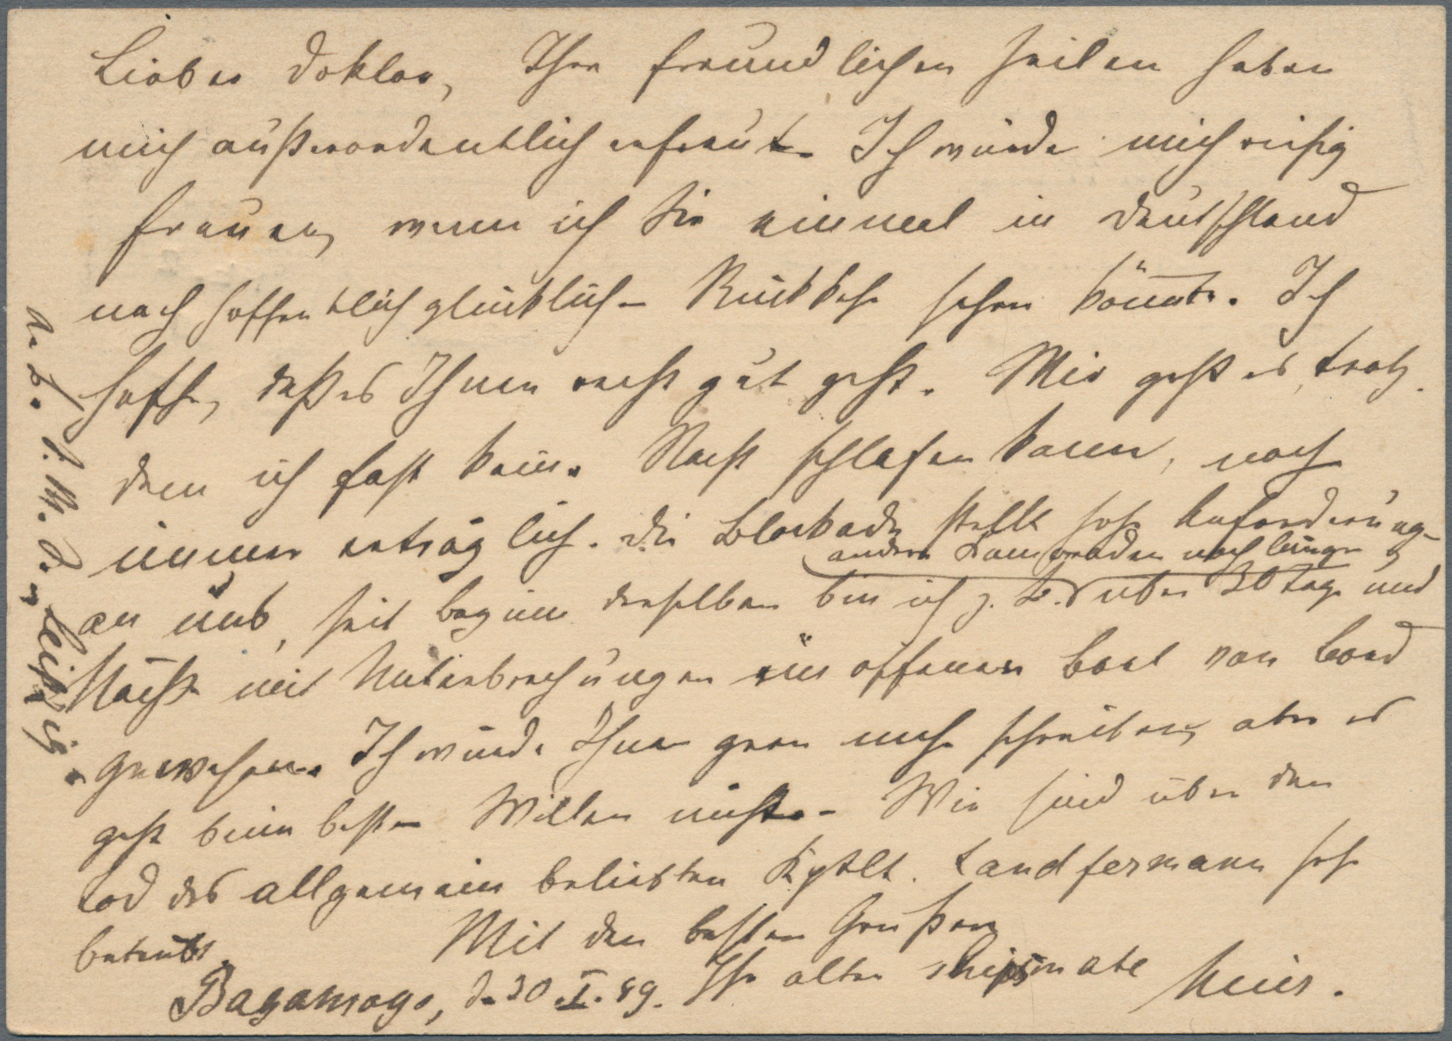 Lieber Doktor, Ihre freundlichen Zeilen haben
mich außerordentlich erfreut. Ich würde mich riesig
freuen, wenn ich Sie einmal in Deutschland
nach hoffentlich glücklich. Rückkehr sehen könnte. Ich
hoffe, daß es Ihnen recht gut geht. Mir geht es, trotz
dem ich fast keine Nacht schlafen kann, noch
immer erträglich. Die Blockade stellt hohe Anforderung.
andere Kameraden noch länger
an uns, seit Beginn derselben bin ich z. B. über 30 Tage und
Nächte mit Unterbrechungen im offenen Boot von Bord
gewesen. Ich würde Ihnen gern mehr schreiben, aber es
geht beim besten Willen nicht. Wir sind über den
Tod des allgemein beliebten Kptlt. Landfermann sehr
betrübt.
Mit den besten Grüßen
Ihr alter shipmate
Bagamoyo, d. 30. I. 89.
a. B. S. M. S. „Leipzig“